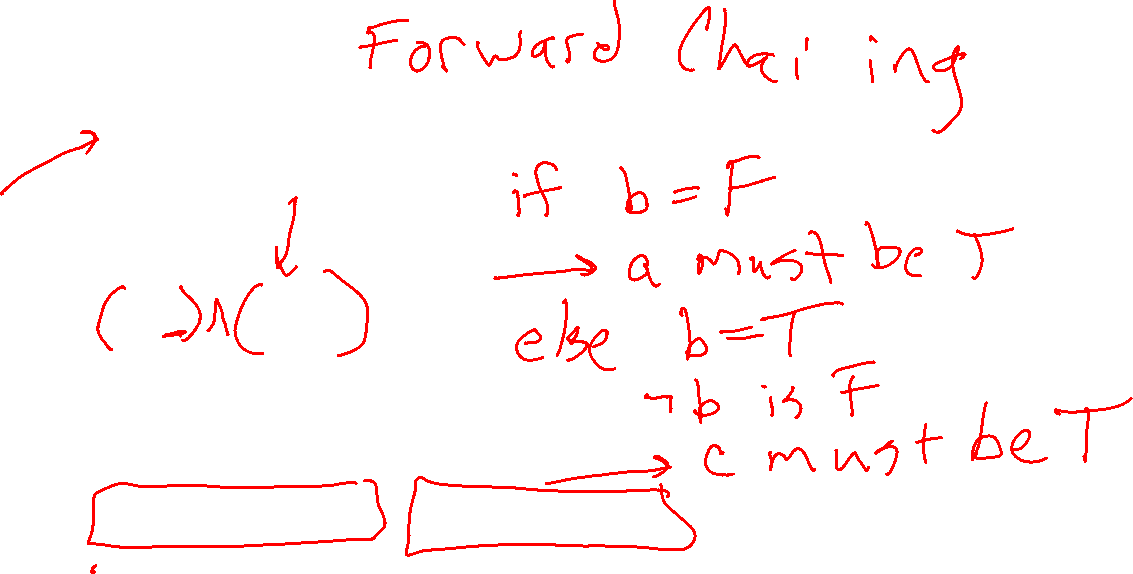 Forward Chai ing
if b = F
→ a must be T
( )∧( )
else b = T
¬b is F
→ c must be T